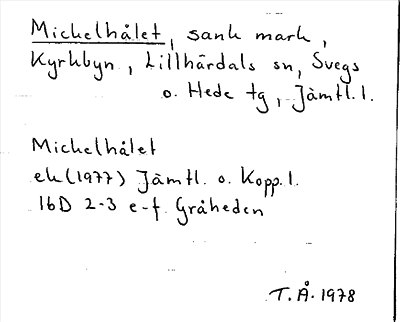 Mickelhålet, sank mark,
Kyrkbyn, Lillhärdals sn, Svegs
o. Hede tg, Jämtl. l.
Mickelhålet
ek (1977) Jämtl. o. Kopp. l.
16D 2-3 e-f Gråheden
T. Å. 1978